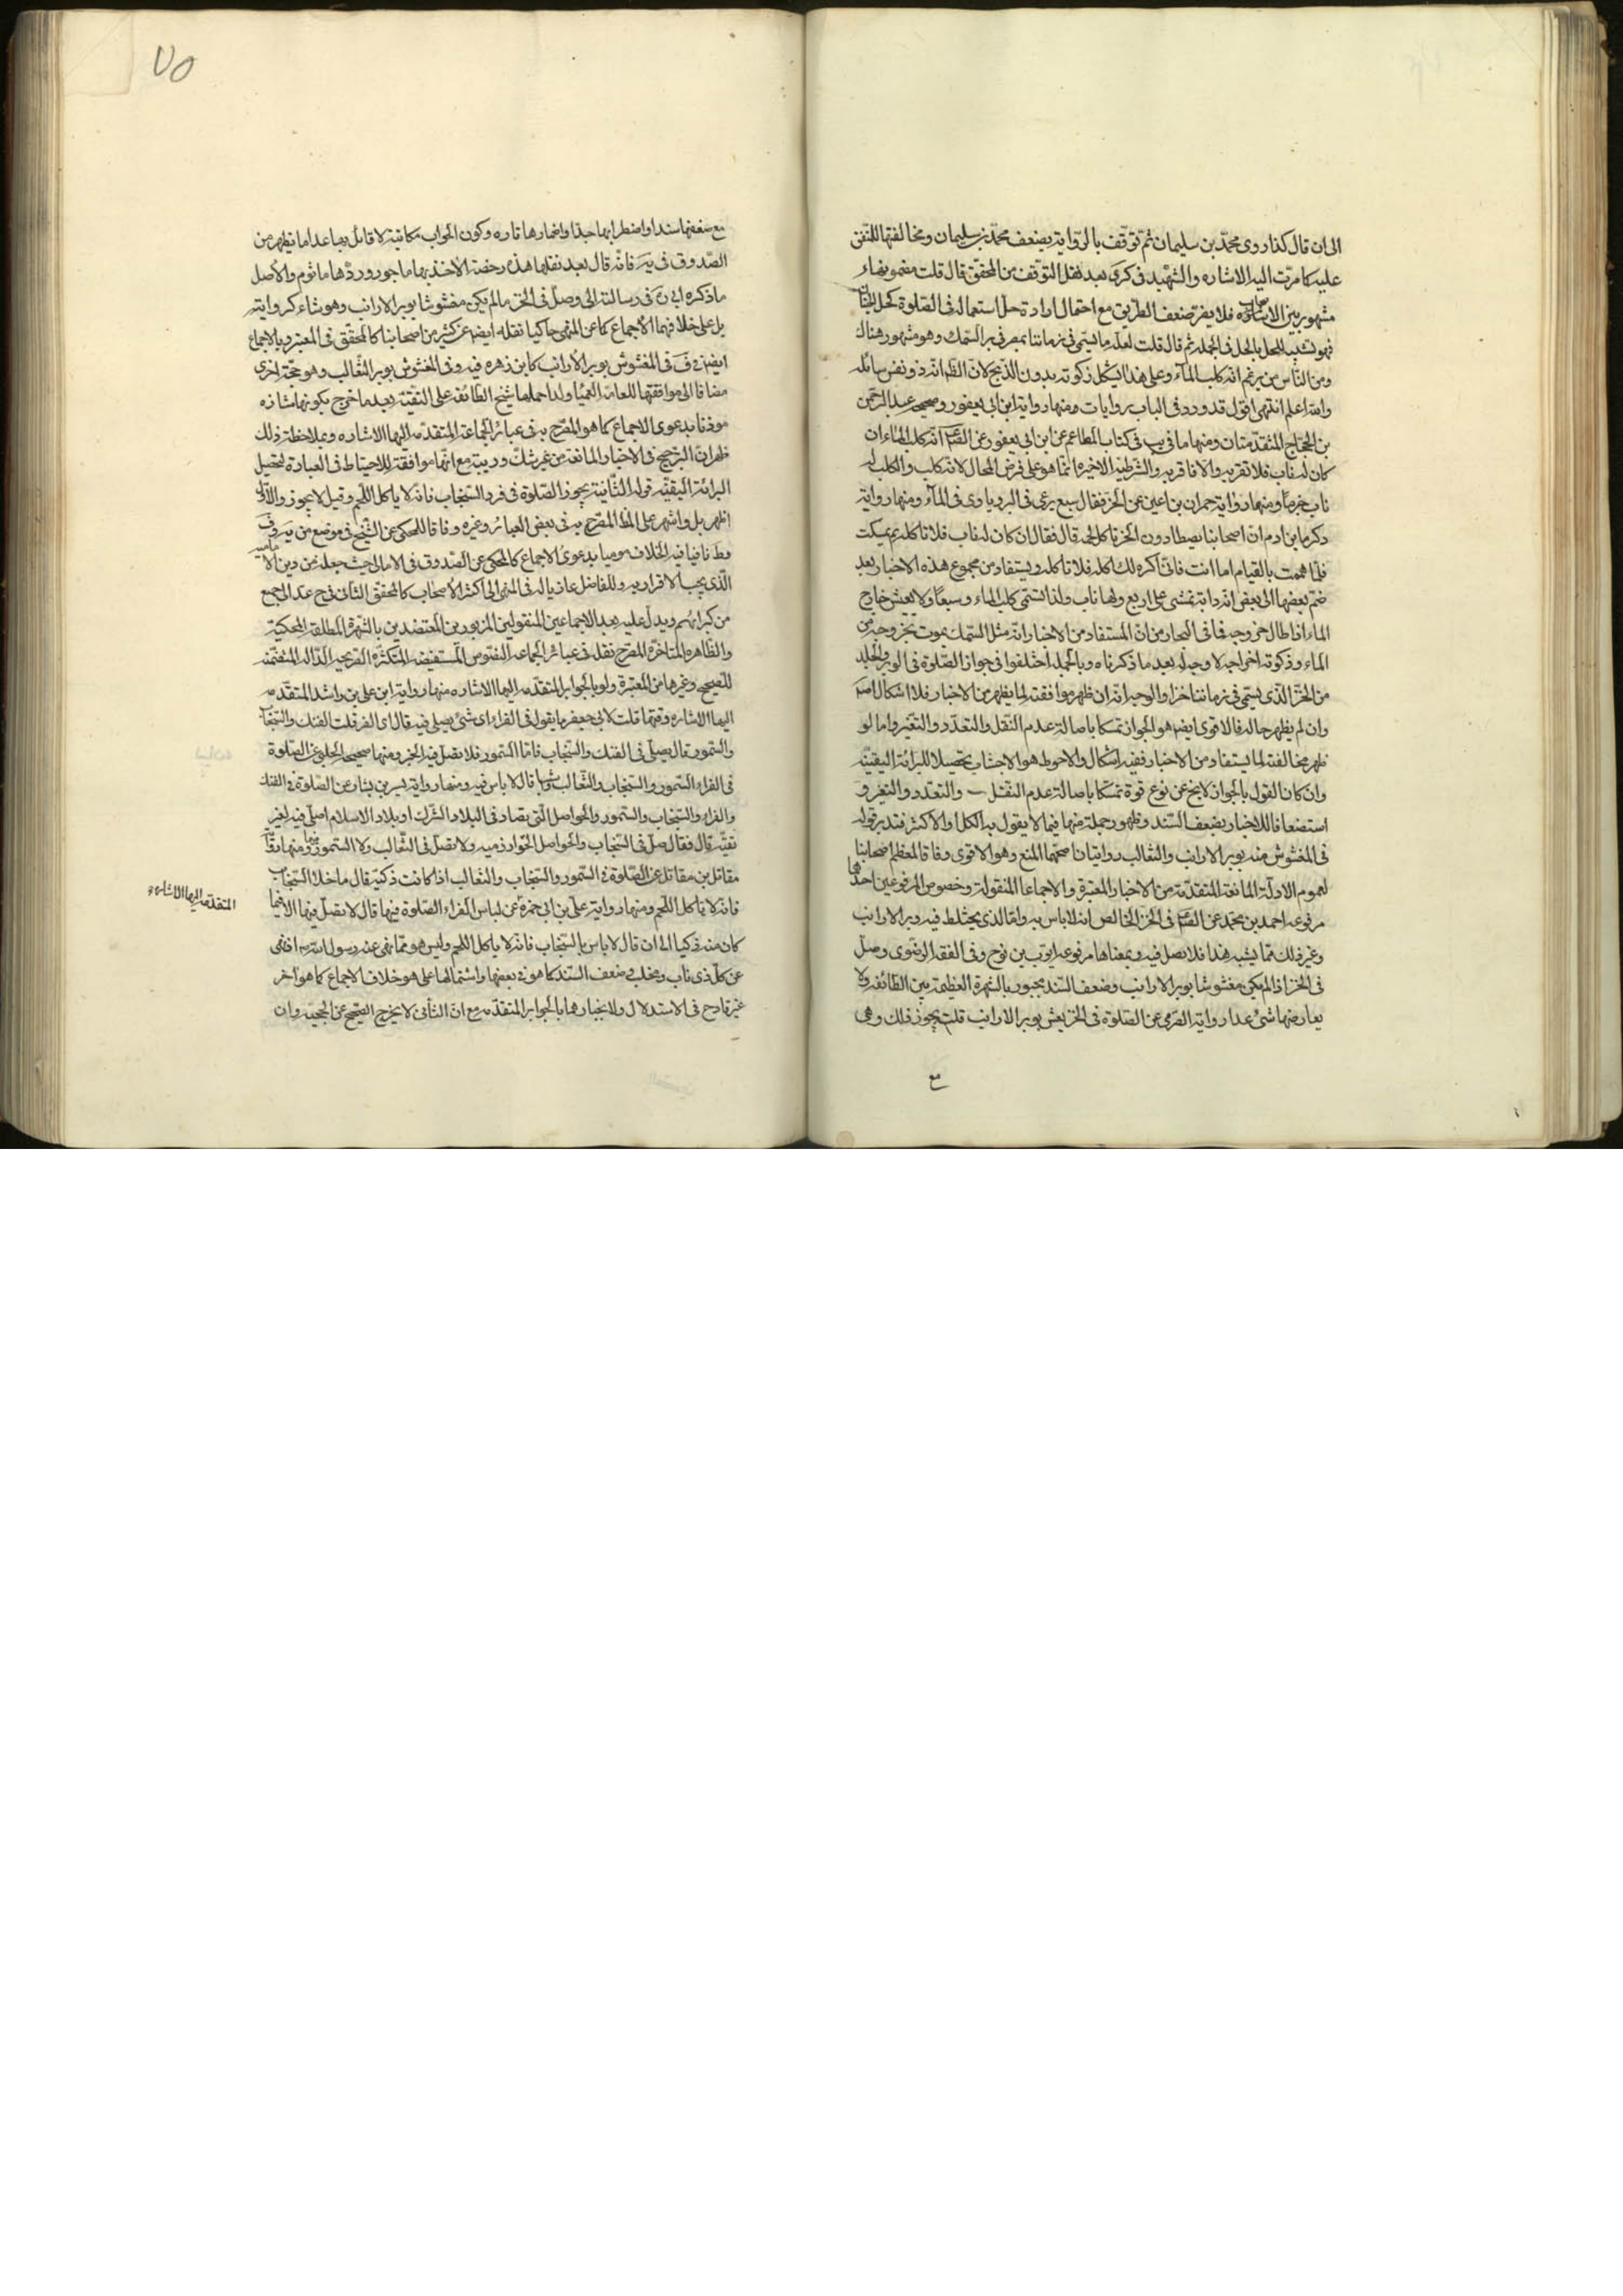 الى ان قال كذا روى محمد بن سليمان ثم توقف بالرواية بضعف محمد بن سليمان ومخالفتها للمتفق
عليه كما مرت اليه الاشاره والشهيد فى كرى بعد نقل التوقف من المحقق قال قلت مضمونها
مشهور بين الاصحاب فلا يضر ضعف الطريق مع احتمال ارادة حل استعماله فى الصلوة كحل
فهو تشبيه للحل بالحل فى الجملة ثم قال قلت لعله ما يسمى فى زماننا بمصر فى بر السمك وهو مشهور هناك
ومن الناس من يزعم انه كلب المآء وعلى هذا يشكل زكوته بدون الذبح لان الظ انه ذو نفس سائله
والله اعلم انتهى اقول قد ورد فى الباب روايات ومنها رواية ابن ابى يعفور وصحيحه عبد الرحمن
بن الحجاج المتقدمتان ومنها ما فى يب فى كتاب المطاعم عن ابن ابى يعفور عن انه كلب الماء ان
كان له ناب فلا تقربه والا فاقربه والشرطية الاخيره انما هو على فرض المحال لانه كلب والكلب له
ناب جزما ومنها رواية حمران بن اعين عن الخز فقال سبع يرعى فى البر وياوى فى المآء ومنها رواية
زكريا بن ادم ان اصحابنا يصطادون الخز فاكل لحمه قال فقال ان كان له ناب فلا تاكله ثم مكث
فلما هممت بالقيام اما انت فانى اكره لك اكله فلا تاكله ويستفاد من مجموع هذه الاخبار بعد
ضم بعضها الى بعض انه دابة تمشى على اربع ولها ناب ولذا تسمى كلب الماء وسبعا ولا يعيش خارج
الماء اذا طال خروجه فما فى البحار من ان المستفاد من الاخبار انه مثل السمك يموت بخروجه من
الماء وذكوته اخراجه لا وجه له بعد ما ذكرناه وبالجملة اختلفوا فى جواز الصلوة فى الوبر والجلد
من الخز الذى يسمى فى زماننا خزا والوجه انه ان ظهر موافقته لما يظهر من الاخبار فلا اشكال
وان لم يظهر حاله فالاقوى ايضا هو الجواز تمسكا باصالة عدم النقل والتعدد والتغير واما لو
ظهر مخالفته لما يستفاد من الاخبار ففيه اشكال والاحوط هو الاجتناب تحصيلا للبرائة اليقينية
وان كان القول بالجواز لا يخ عن نوع قوة تمسكا باصالة عدم النقل والتعدد والتغير و
استضعافا للاخبار بضعف السند وظهور جملة منها فيما لا يقول به الكل او الاكثر فتدبر قوله
فى المغشوش منه بوبر الارانب والثعالب روايتان اصحهما المنع وهو الاقوى وفاقا لمعظم اصحابنا
لعموم الادلة المانعة المتقدمة من الاخبار المعتبرة والاجماعا المنقولة وخصوص المرفوعين احدها
مرفوعه احمد بن محمد عن فى الخز الخالص انه لا باس به واما الذى يختلط فيه وبر الارانب
وغير ذلك مما يشبه هذا فلا تصل فيه وبمعناها مرفوعه ايوب بن نوح وفى الفقه الرضوى وصل
فى الخز اذا لم يكن مغشوشا بوبر الارانب وضعف السند مجبور بالشهرة العظيمة بين الطائفه ولا
يعارضها شئ عدا رواية الصرمى عن الصلوة فى الخز يغش بوبر الارانب قلت يجوز ذلك وهى
مع
٧٥
مع ضعفها سندا واضطرابها جدا واضمارها تاره وكون الجواب مكاتبة لا قائل بها عدا ما يظهر من
الصدوق فى يه فانه قال بعد نقلها هذه رخصة الاخذ بها ماجور ورادها ماثوم والاصل
ما ذكره ابى ره فى رسالته الى وصل فى الخز مالم يكن مغشوشا بوبر الارانب وهو شاء كروايته
بل على خلافهما الاجماع كما عن المنتهى حاكيا نقله ايضا عن كثير من اصحابنا كالمحقق فى المعتبر والاجماع
ايضا فى ف فى المغشوش بوبر الارانب كابن زهره فيه وفى المغشوش بوبر الثعالب وهو حجة اخرى
مضافا الى موافقتها للعامه العميا ولذا حملها شيخ الطائفة على التقية بعد ما خرج بكونها شاذه
موذنا بدعوى الاجماع كما هو المصرح به فى عبائر الجماعة المتقدمه اليها الاشاره وبملاحظة ذلك
ظهر ان الترجيح فى الاخبار المانعة من غير شك وريبة مع انها موافقة للاحتياط فى العبادة لتحصيل
البرائة اليقينيه قوله الثانية يجوز الصلوة فى فرو السنجاب فانه لا ياكل اللحم وقيل لا يجوز والاول
اظهر بل واشهر على الظ المصرح به فى بعض العبائر وغيره وفاقا للمحكى عن الشيخ فى موضع من يه وف
وط نافيا فيه الخلاف موميا بدعوى الاجماع كالمحكى عن الصدوق فى الامالى حيث جعله من دين الامامية
الذى يجب الاقرار به وللفاضل عازيا له فى المنتهى الى اكثر الاصحاب كالمحقق الثانى فى ح عد الى جمع
من كبرائهم ويدل عليه بعد الاجماعين المنقولين المزبورين المعتضدين بالشهرة المطلقة المحكية
والظاهرة المتاخرة المصرح بنقله فى عبائر الجماعه النصوص المستفيضه المتكثره الصريحه الدالة المتضمنه
للصحيح وغيرها من المعتبرة ولو بالجوابر المتقدمه اليها الاشاره منها رواية ابن على بن راشد المتقدمه
اليها الاشاره وفيها قلت لابى جعفر ما يقول فى الفراء اى شئ يصلى فيه قال اى الفر قلت الفنك والسنجاب
والسمور قال يصلى فى الفنك والسنجاب فاما السمور فلا تصل فيه الخبر ومنها صحيحة الحلبى عن الصلوة
فى الفراء السمور والسنجاب والثعالب قال لا باس فيه ومنها رواية بسير بن بشار عن الصلوة فى الفنك
والفراء والسنجاب والسمور والحواصل التى تصاد فى البلاد الشرك او بلاد الاسلام اصلى فيه لغير
تقيه قال فقال صل فى السنجاب والحواصل الخوارزميه ولا تصل فى الثعالب ولا السمور ومنها
مقاتل بن مقاتل عن الصلوة فى السمور والسنجاب والثعالب اذا كانت ذكية قال ما خلا السنجاب
فانه لا ياكل اللحم ومنها رواية على بن ابى حمزة عن لباس الفراء الصلوة فيها قال لا تصل فيها الا فيما
كان منه ذكيا الى ان قال لا باس بالسنجاب فانه لا ياكل اللحم وليس هو مما نهى عنه رسول الله اذ نهى
عن كل ذى ناب ومخلب وضعف السند كما هو فى بعضها واشتمالها على هو خلاف الاجماع كما هو اخر
غير قادح فى الاستدلال ولا نجبارهما بالجوابر المتقدمه مع ان الثانى لا يخرج الصحيح عن الحجيه وان
المتقدمه اليها الاشاره